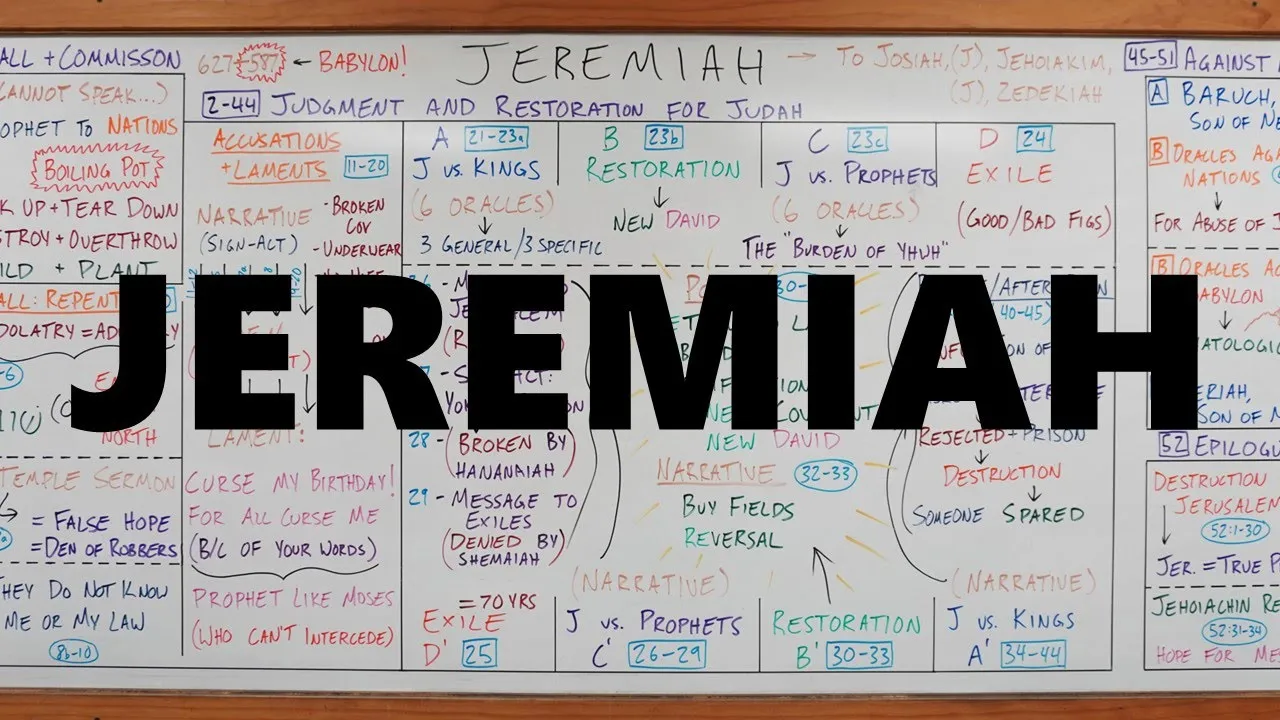 JEREMIAH
ALL + COMMISSON
CANNOT SPEAK...)
OPHET TO NATIONS
BOILING POT
K UP + TEAR DOWN
STROY + OVERTHROW
ILD + PLANT
ALL: REPENT
DOLATRY = ADO
NORTH
TEMPLE SERMON
= FALSE HOPE
= DEN OF ROBBERS
HEY DO NOT KNOW
ME OR MY LAW
8b-10
627-587 ← BABYLON!
JEREMIAH → TO JOSIAH, (J), JEHOIAKIM,
(J), ZEDEKIAH
2-44 JUDGMENT AND RESTORATION FOR JUDAH
ACCUSATIONS
+ LAMENTS 11-20
NARRATIVE
(SIGN-ACT)
- BROKEN
COV
- UNDERWEAR
LAMENT:
CURSE MY BIRTHDAY!
FOR ALL CURSE ME
(B/C OF YOUR WORDS)
PROPHET LIKE MOSES
(WHO CAN'T INTERCEDE)
A 21-23a
J VS. KINGS
(6 ORACLES)
3 GENERAL/3 SPECIFIC
B 23b
RESTORATION
NEW DAVID
C 23c
J VS. PROPHETS
(6 ORACLES)
THE "BURDEN OF YHUH"
D 24
EXILE
(GOOD/BAD FIGS)
28 - (BROKEN BY
HANANAIAH)
29 - MESSAGE TO
EXILES
(DENIED BY
SHEMAIAH)
= 70 YRS
EXILE
D' 25
NEW DAVID
NARRATIVE 32-33
BUY FIELDS
REVERSAL
(NARRATIVE)
J VS. PROPHETS
C' 26-29
RESTORATION
B' 30-33
/AFTER
40-45)
REJECTED + PRISON
DESTRUCTION
SOMEONE SPARED
(NARRATIVE)
J VS. KINGS
A' 34-44
45-51 AGAINST
A BARUCH,
SON OF NE
B ORACLES AGA
NATIONS
FOR ABUSE OF J
B ORACLES AG
BABYLON
ERIAH,
SON OF N
52 EPILOGU
DESTRUCTION
JERUSALEM
52:1-30
JER. = TRUE P
JEHOIACHIN RE
52:31-34
HOPE FOR ME